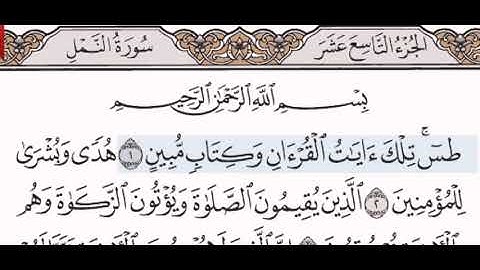 الجزء التاسع عشر
سورة النمل
بِسْمِ ٱللَّهِ ٱلرَّحْمَٰنِ ٱلرَّحِيمِ
طسٓۚ تِلْكَ ءَايَٰتُ ٱلْقُرْءَانِ وَكِتَابٍ مُّبِينٍ ١ هُدًى وَبُشْرَىٰ
لِلْمُؤْمِنِينَ ٢ ٱلَّذِينَ يُقِيمُونَ ٱلصَّلَوٰةَ وَيُؤْتُونَ ٱلزَّكَوٰةَ وَهُم